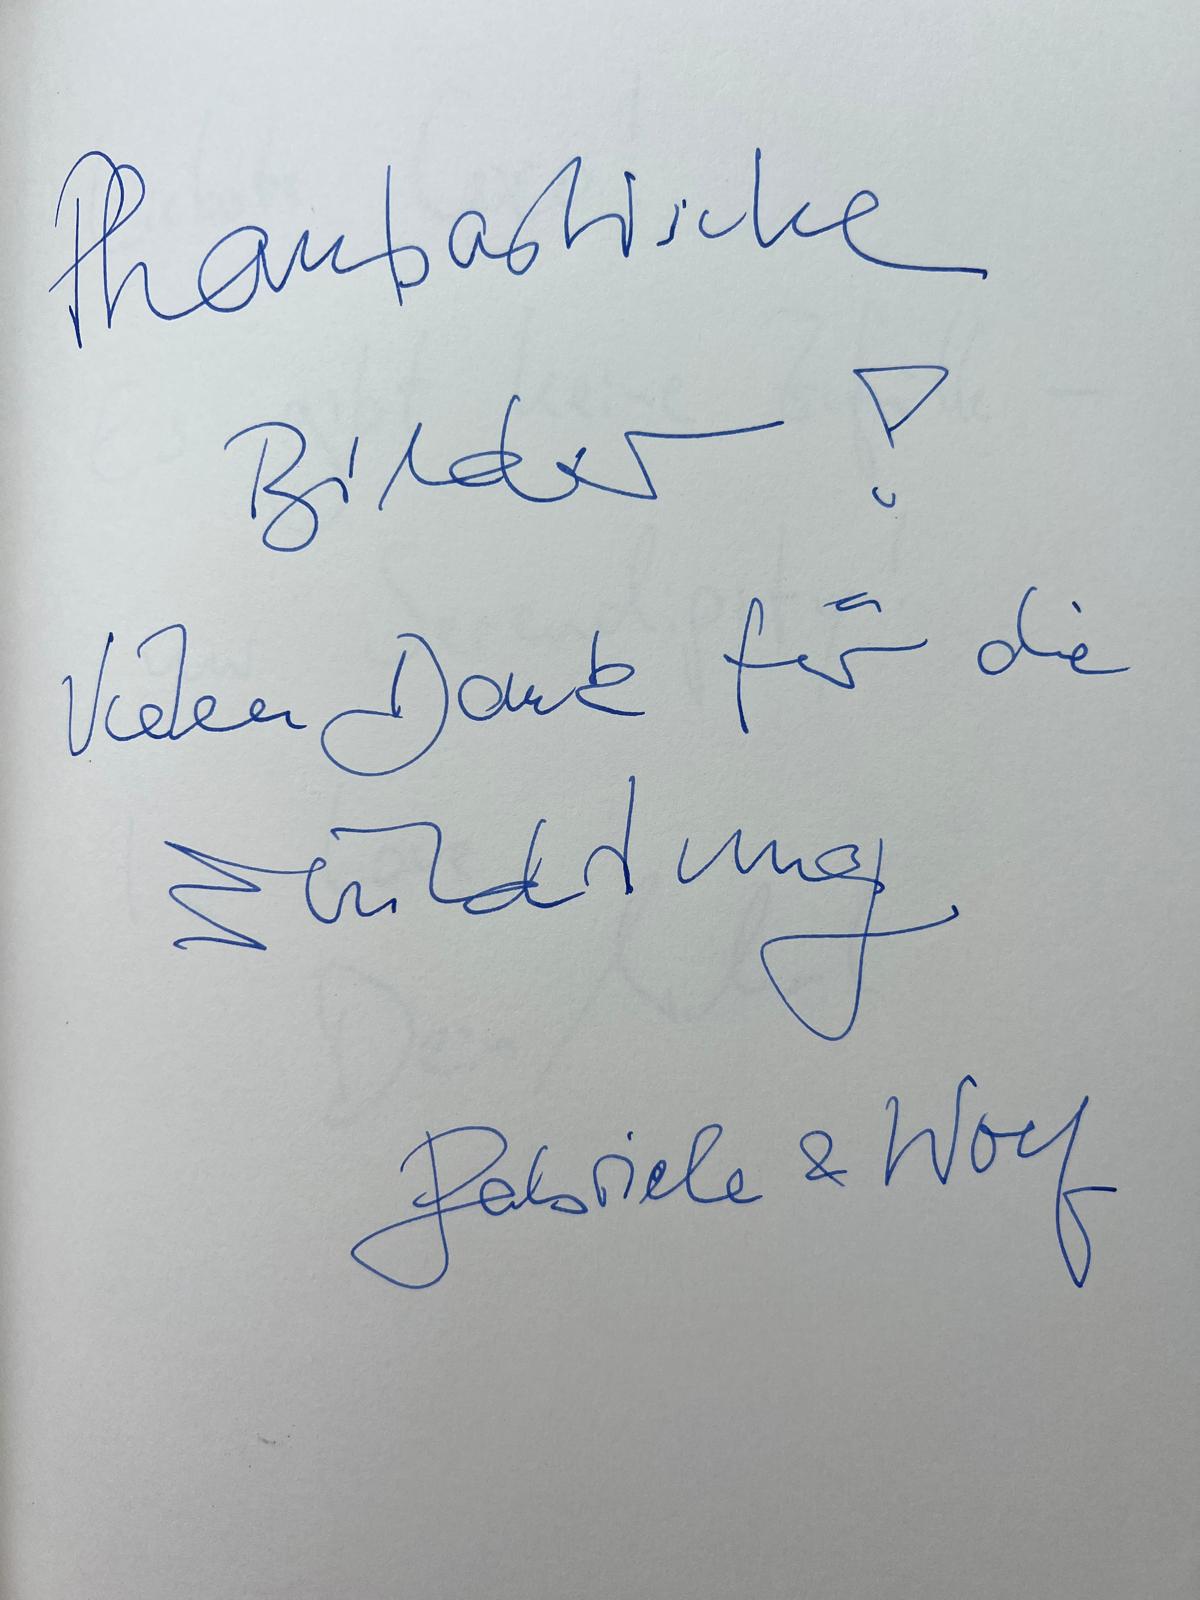 Phantastische
Bilder!
Vielen Dank für die
Einladung
Gabriele & Wolf